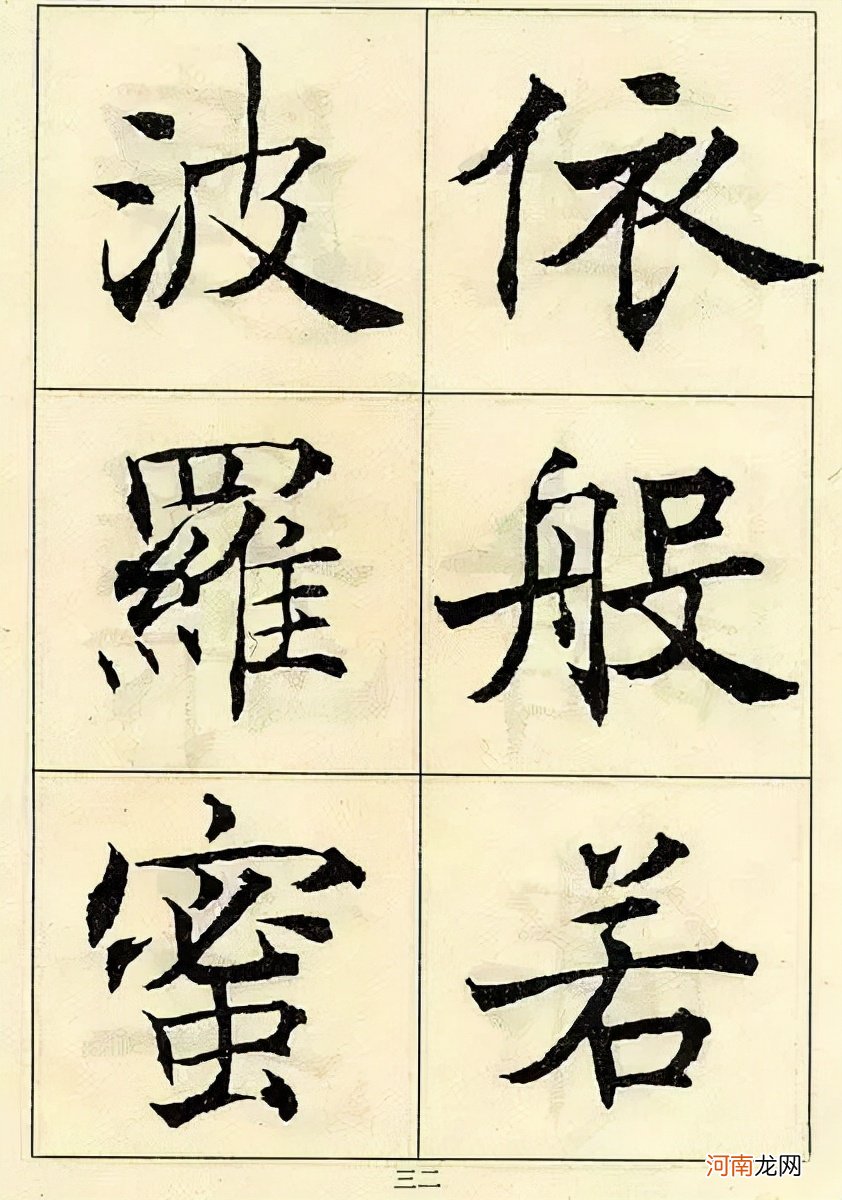 依般若
波羅蜜
三二
河南龙网